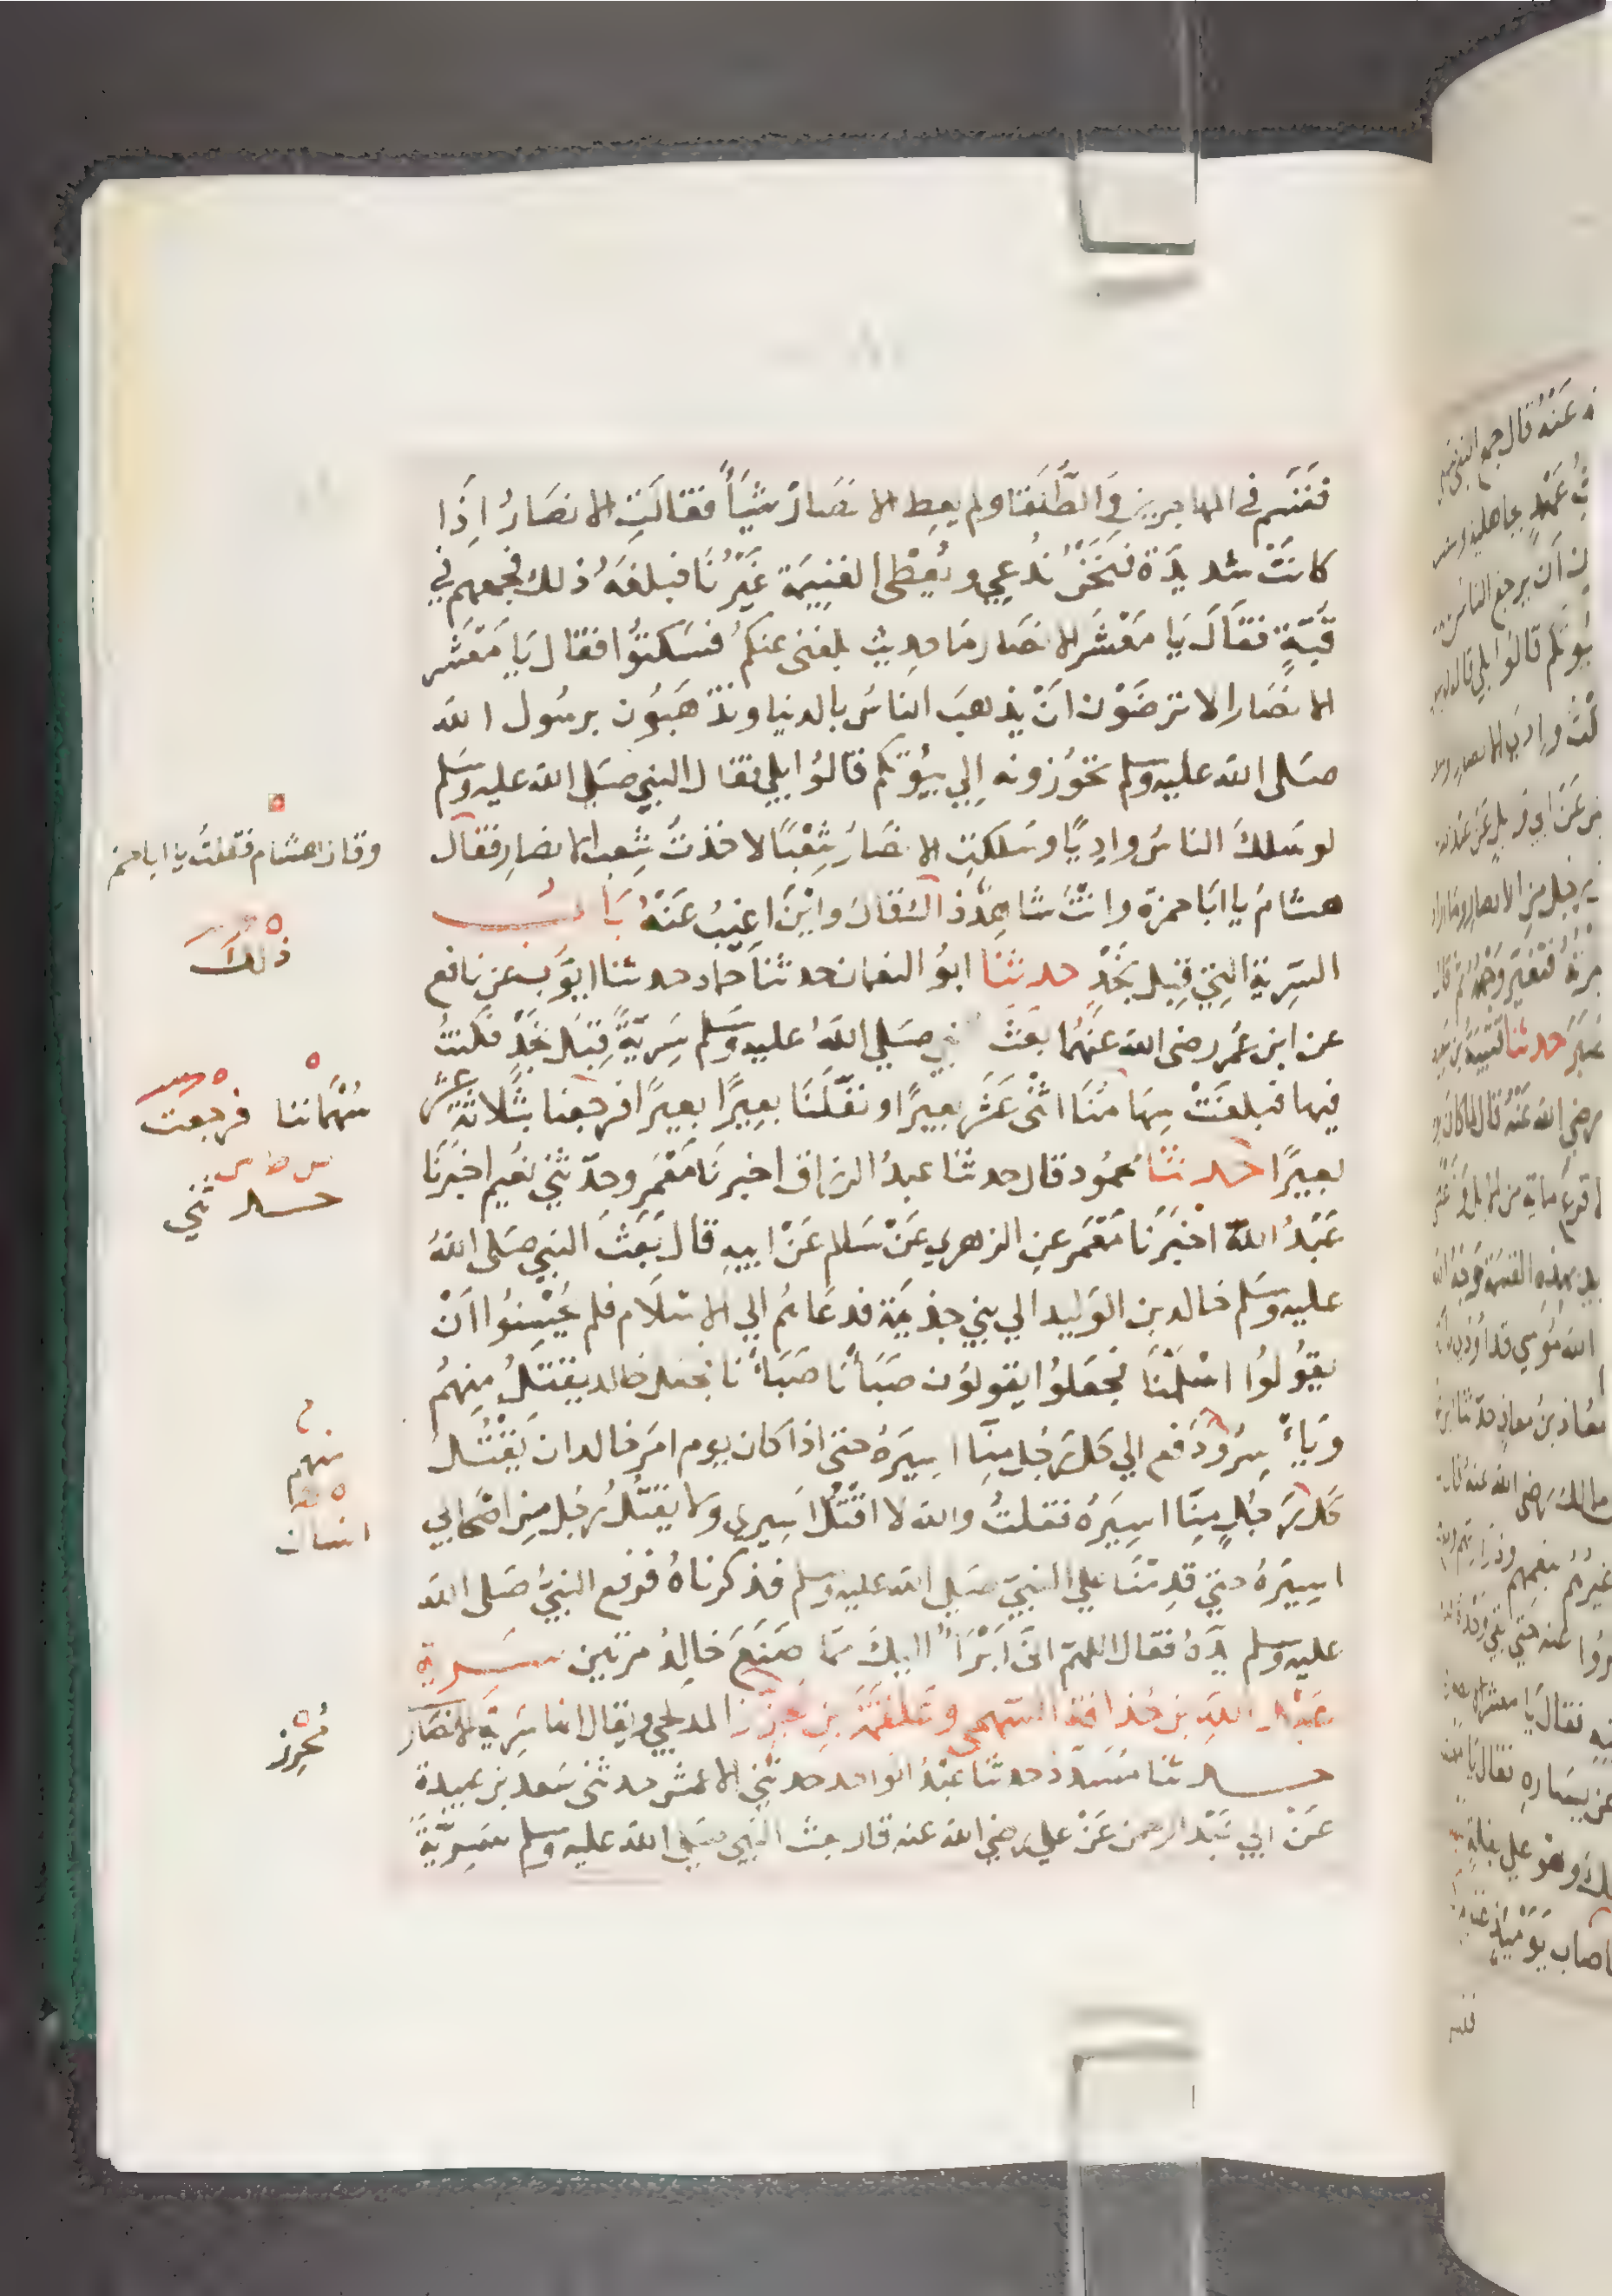 فقسم في المهاجرين والطلقا ولم يعط الانصار شيأ فقالت الانصار اذا
كانت شديدة فنحن ندعي ويعطى الغنيمة غيرنا فبلغه ذلك فجمعهم في
قبة فقال يا معشر الانصار ما حديث بلغنى عنكم فسكتوا فقال يا معشر
الانصار الا ترضون ان يذهب الناس بالدنيا وتذهبون برسول الله
صلى الله عليه وسلم تحوزونه الي بيوتكم قالوا بلي فقال النبي صلى الله عليه وسلم
لو سلك الناس واديا وسلكت الانصار شعبا لاخذت شعب الانصار فقال
هشام يا ابا حمزة وانت شاهد ذاك قال واين اغيب عنه باب
السرية التي قبل نجد حدثنا ابو النعمان حدثنا حماد حدثنا ايوب عن نافع
عن ابن عمر رضى الله عنهما بعث النبي صلي الله عليه وسلم سرية قبل نجد فكنت
فيها فبلغت سهامنا اثنى عشر بعيرا ونفلنا بعيرا بعيرا فرجعنا بثلاثة عشر
بعيرا حدثنا محمود قال حدثنا عبد الرزاق اخبرنا معمر وحدثني نعيم اخبرنا
عبد الله اخبرنا معمر عن الزهري عن سالم عن ابيه قال بعث النبي صلى الله
عليه وسلم خالد بن الوليد الي بني جذيمة فدعاهم الي الاسلام فلم يحسنوا ان
يقولوا اسلمنا فجعلوا يقولون صبأنا صبأنا فجعل خالد يقتل منهم
وياسر ودفع الي كل رجل منا اسيره حتى اذا كان يوم امر خالد ان يقتل
كل رجل منا اسيره فقلت والله لا اقتل اسيري ولا يقتل رجل من اصحابي
اسيره حتي قدمنا علي النبي صلى الله عليه وسلم فذكرناه فرفع النبي صلى الله
عليه وسلم يده فقال اللهم اني ابرأ اليك مما صنع خالد مرتين سرية
عبد الله بن حذافة السهمي وعلقمة بن مجزز المدلجي ويقال انها سرية الانصار
حدثنا مسدد حدثنا عبد الواحد حدثني الاعمش حدثنى سعد بن عبيدة
عن ابي عبد الرحمن عن علي رضي الله عنه قال بعث النبي صلى الله عليه وسلم سرية
وقال هشام فقلت يا ابا حمزة
ذلك
سهماننا فرجعت
حدثني
منهم
انسان
محرز